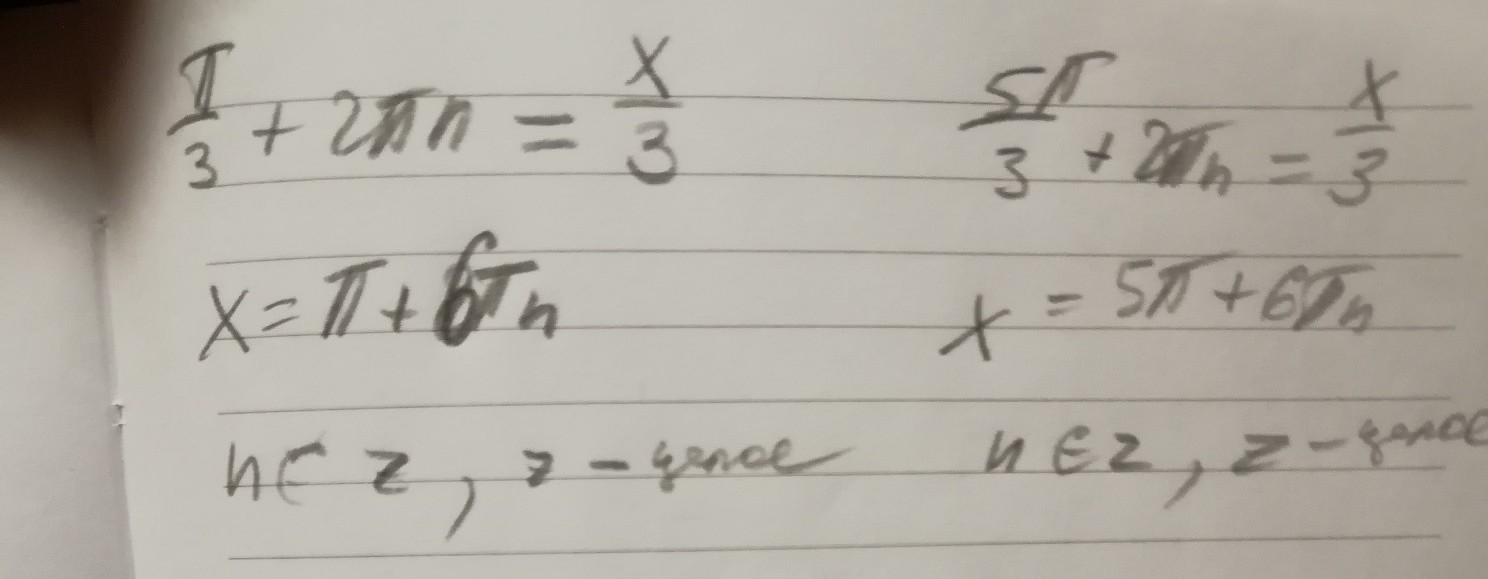 π/3 + 2πn = x/3    5π/3 + 2πn = x/3
x = π + 6πn    x = 5π + 6πn
n ∈ z, z - целое    n ∈ z, z - целое